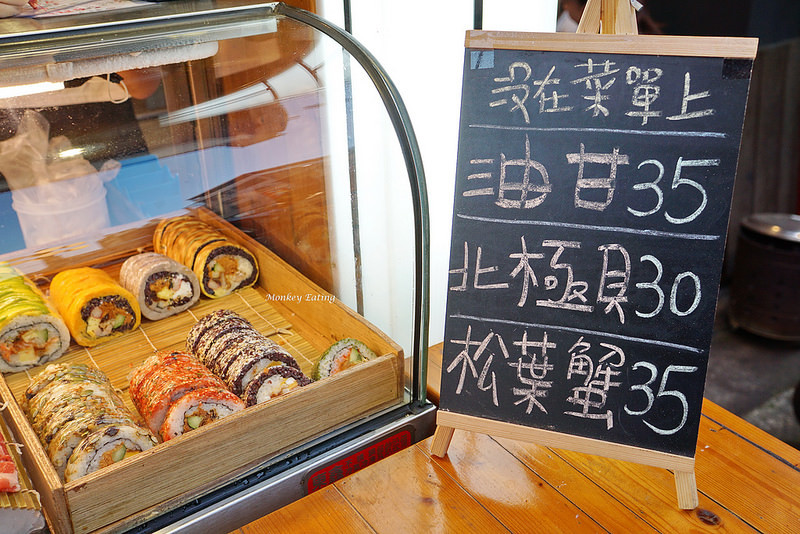 没在菜單上
油甘35
北極貝30
松葉蟹35
Monkey Eating